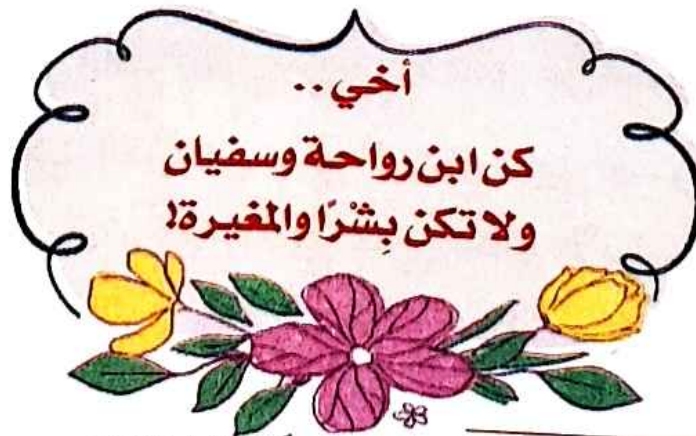 أخي..
كن ابن رواحة وسفيان
ولا تكن بِشْرًا والمغيرة!